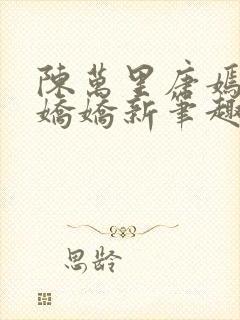 陳萬里唐嫣
嬌嬌新筆趣
思齡